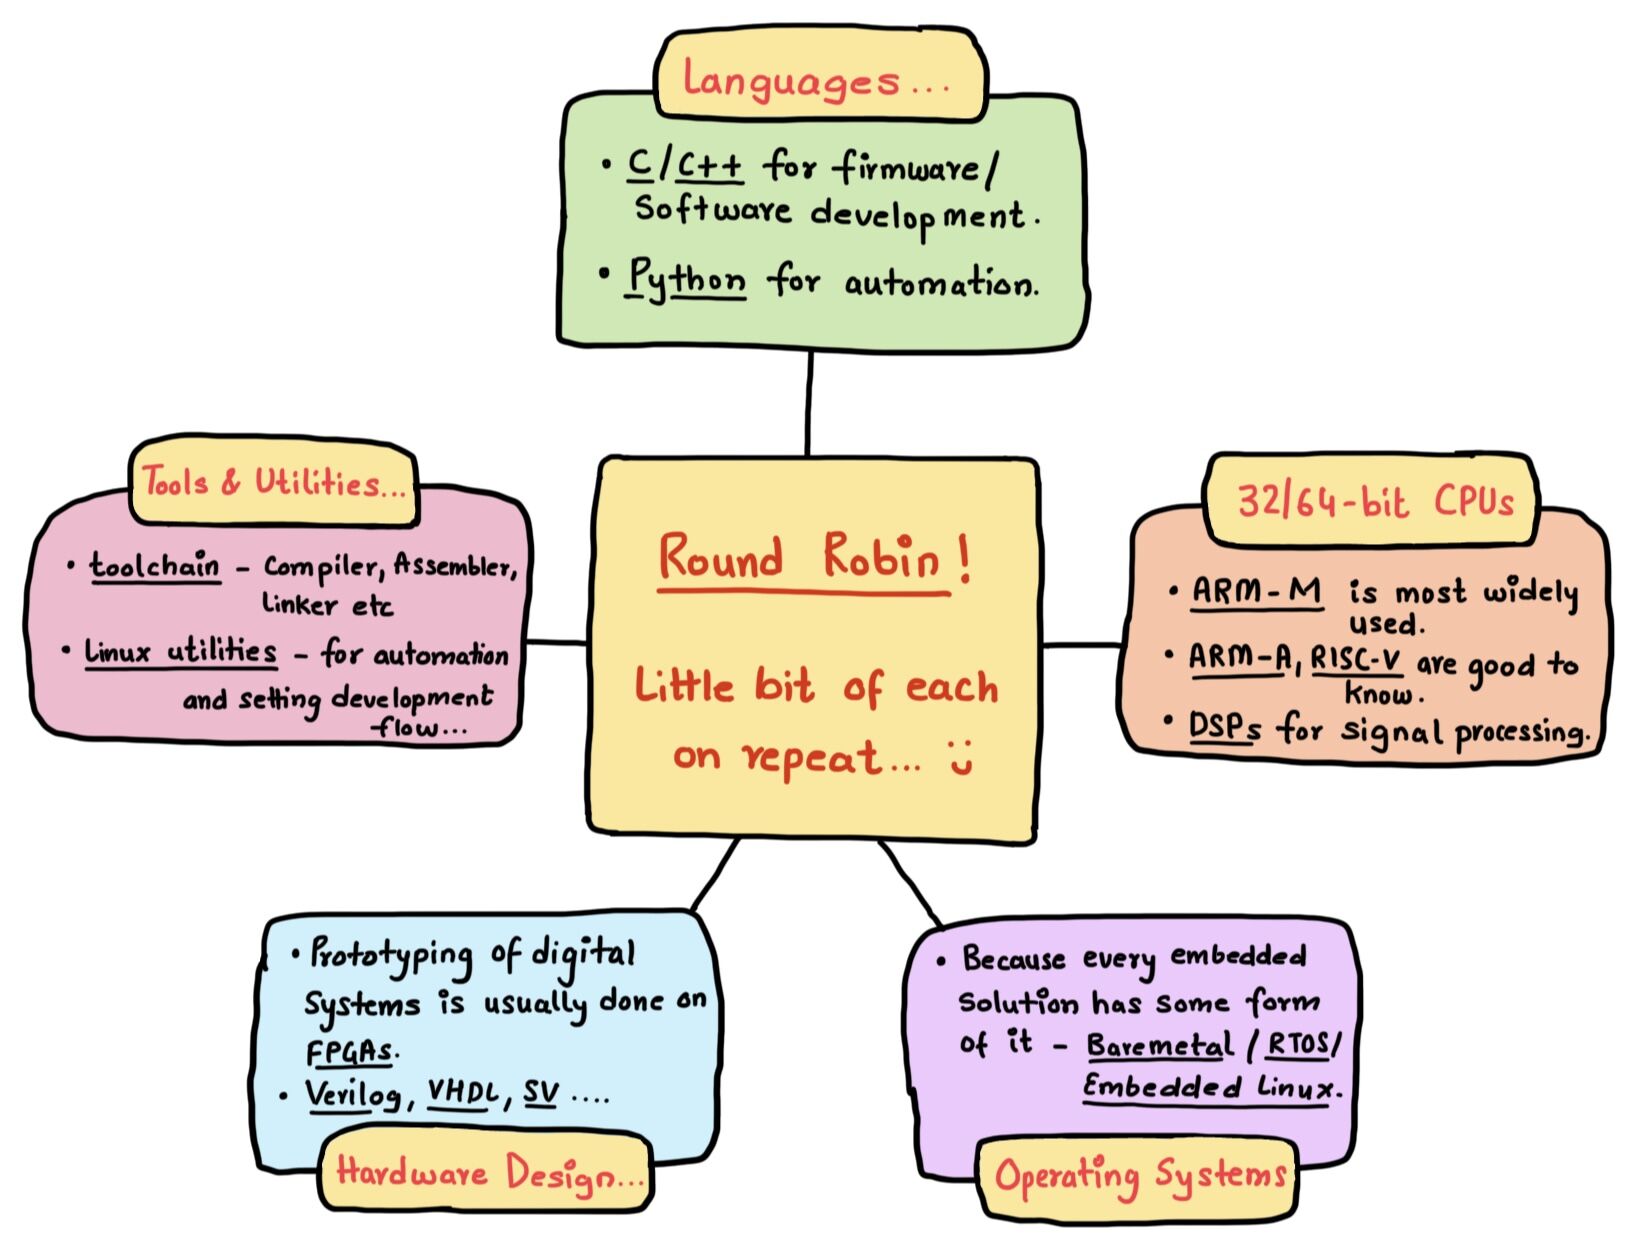 Languages...
• C/C++ for firmware/
Software development.
• Python for automation.
Tools & Utilities...
• toolchain - Compiler, Assembler,
Linker etc
• Linux utilities - for automation
and setting development
flow...
Round Robin!
Little bit of each
on repeat... :)
32/64-bit CPUs
• ARM-M is most widely
used.
• ARM-A, RISC-V are good to
know.
• DSPs for signal processing.
• Prototyping of digital
Systems is usually done on
FPGAs.
• Verilog, VHDL, SV ....
Hardware Design...
• Because every embedded
Solution has some form
of it - Baremetal / RTOS/
Embedded Linux.
Operating Systems